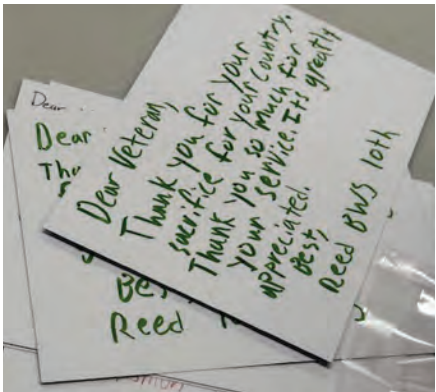 Dear Veteran,
Thank you for your
sacrifice for your country.
Thank you so much for
your service. Its greatly
appreciated.
Best,
Reed BWS 10th
Dear
Dear
Best,
Reed